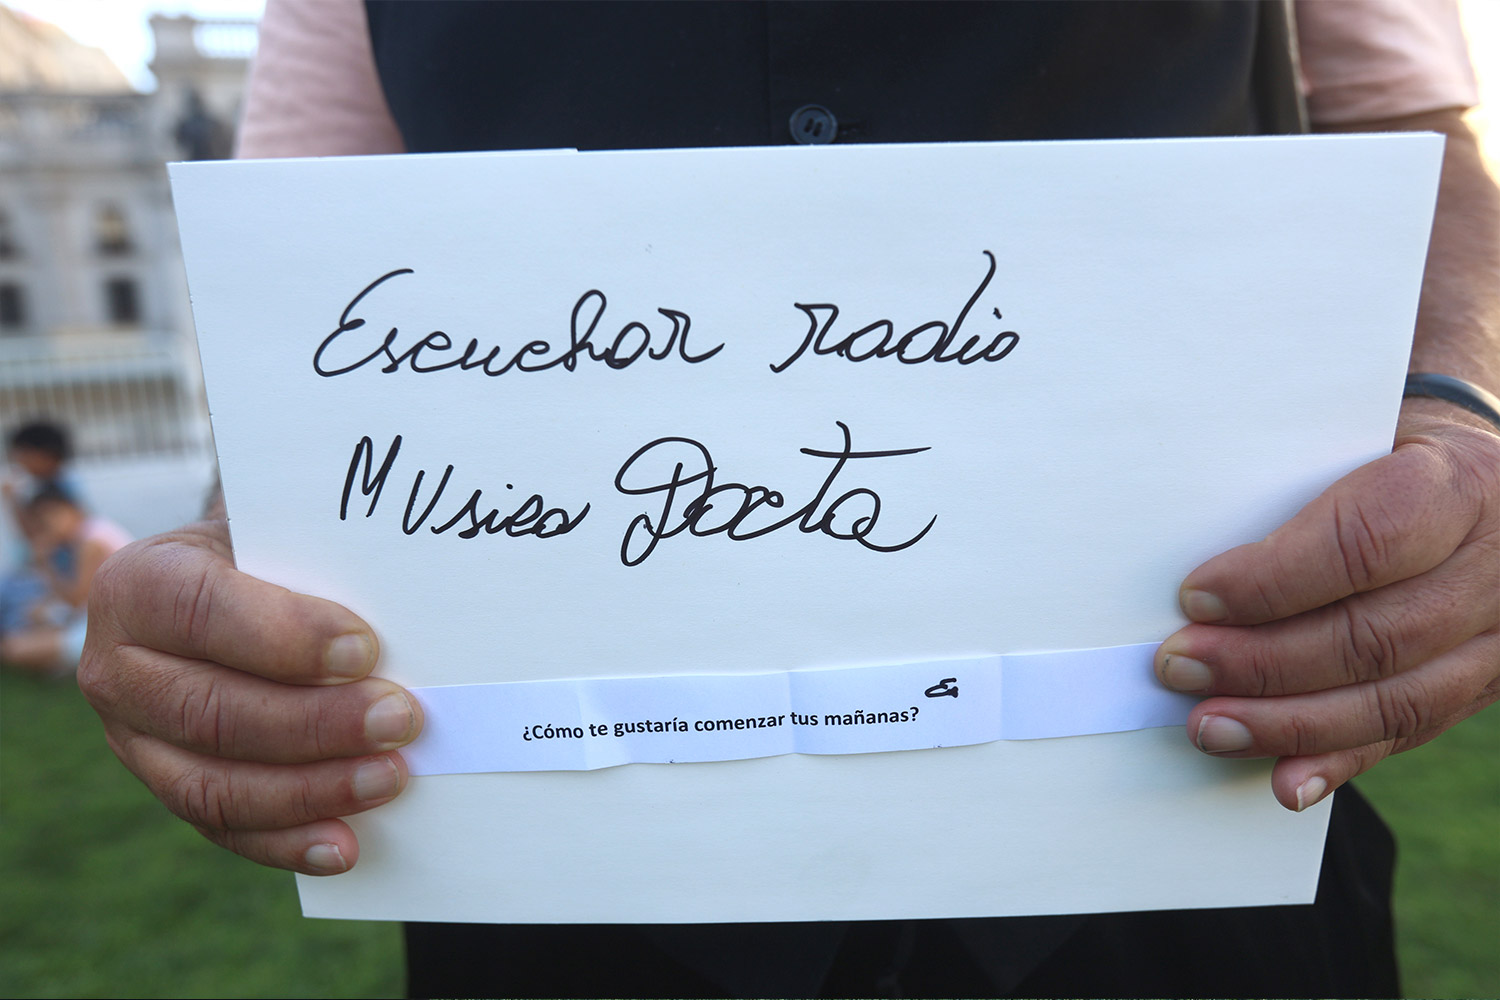 Escuchar radio
MUsica Docta
¿Cómo te gustaría comenzar tus mañanas?